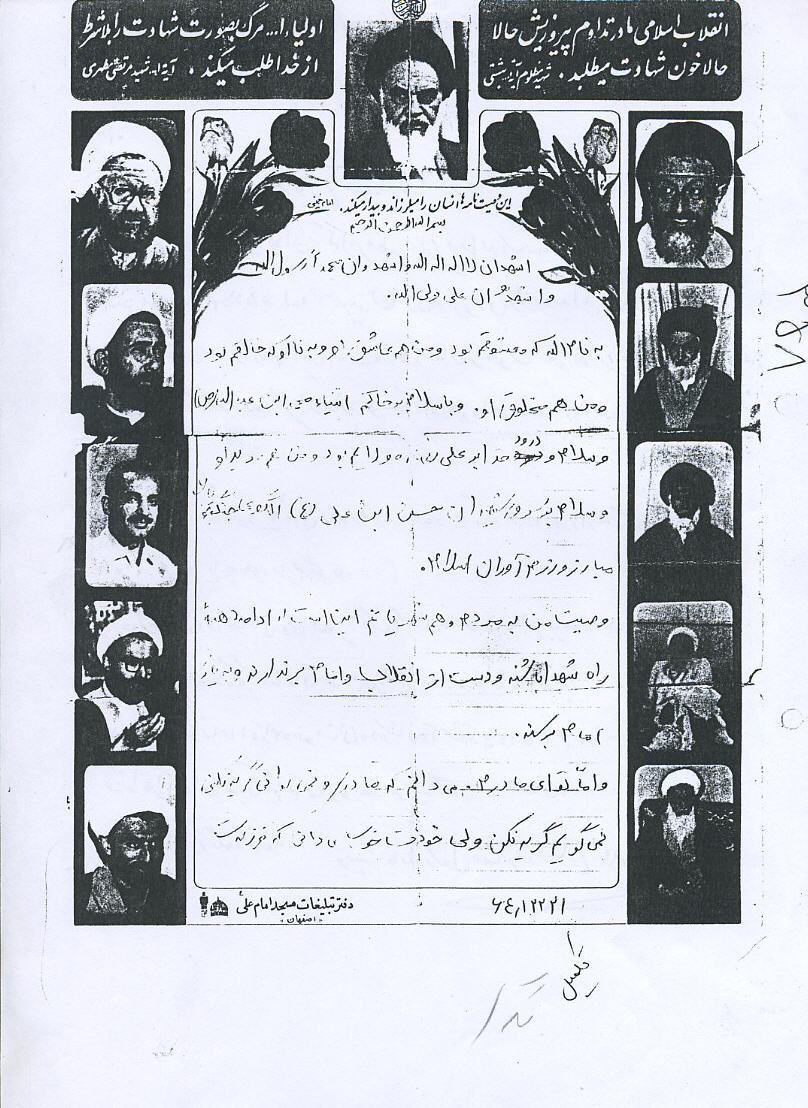 انقلاب اسلامی ما در تداوم پیروزیش حالا
حالا خون شهادت میطلبد. شهید مظلوم آیة الله بهشتی
اولیاء ا... مرگ بصورت شهادت را بلاشرط
از خدا طلب میکند. آیة اله شهید مرتضی مطهری
این وصیت نامه ها انسان را میلرزاند و بیدار میکند. امام خمینی
بسم الله الرحمن الرحیم
اشهد ان لا اله اله اله و اشهد و ان محمد رسول اله
و اشهد ان علی ولی اله.
به نام اله که معشوقم بود و من هم عاشق او و به نام او که خالقم بود
و من هم مخلوق او. و با سلام بر خاتم انبیاء محمد ابن عبداله (ص)
و سلام و درود خدا بر علی که مولایم بود و من هم
و سلام بر سرور شهیدان حسین ابن علی (ع)
مبارز و رزم آوران اسلام.
وصیت من به مردم و هم این است که ادامه دهنده
راه شهدا باشند و دست از انقلاب و امام برندارند و به یاری
امام برکند.
و اما توای مادرم می دانم که مادری و نمی توانی گریه نکنی
نمی گویم گریه نکن ولی خودت خوب می دانی که فرزندت
دفتر تبلیغات مسجد امام علی
اصفهان
۶۴/۱۲۲۲۱
تکمیل